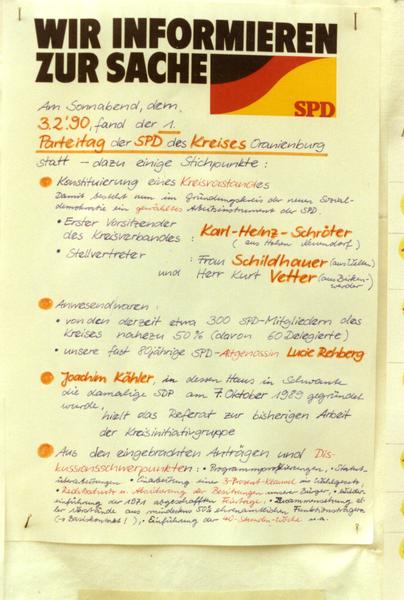 WIR INFORMIEREN
ZUR SACHE
SPD
Am Sonnabend, dem
3.2.'90, fand der 1.
Parteitag der SPD des Kreises Oranienburg
statt – dazu einige Stichpunkte:
Konstituierung eines Kreisvorstandes
Damit besteht nun im Gründungskreis der neuen Sozial-
demokratie ein gewähltes Arbeitsinstrument der SPD.
• Erster Vorsitzender
des Kreisverbandes : Karl-Heinz-Schröter
(aus Hohen Neuendorf)
• Stellvertreter : Frau Schildhauer (aus Velten)
und Herr Kurt Vetter (aus Birken-
werder)
Anwesend waren:
• von den derzeit etwa 300 SPD-Mitgliedern des
Kreises nahezu 50% (davon 60 Delegierte)
• unsere fast 80jährige SPD-Altgenossin Lucie Rehberg
Joachim Kähler, in dessen Haus in Schwante
die damalige SDP am 7. Oktober 1989 gegründet
wurde,
hielt das Referat zur bisherigen Arbeit
der Kreisinitiativgruppe
Aus den eingebrachten Anträgen und Dis-
kussionsschwerpunkten: • Programmpräzisierungen, • Statut-
überarbeitungen • Einarbeitung einer 3-Prozent-Klausel im Wahlgesetz,
• Rechtsschutz u. Absicherung der Besitzungen unserer Bürger, • Wieder-
einführung der 1971 abgeschafften Feiertage, • Zusammensetzung al-
ler Vorstände aus mindestens 50% ehrenamtlichen Funktionsträgern
(→ Basiskontakt!), • Einführung der 40-Stunden-Woche u.a.